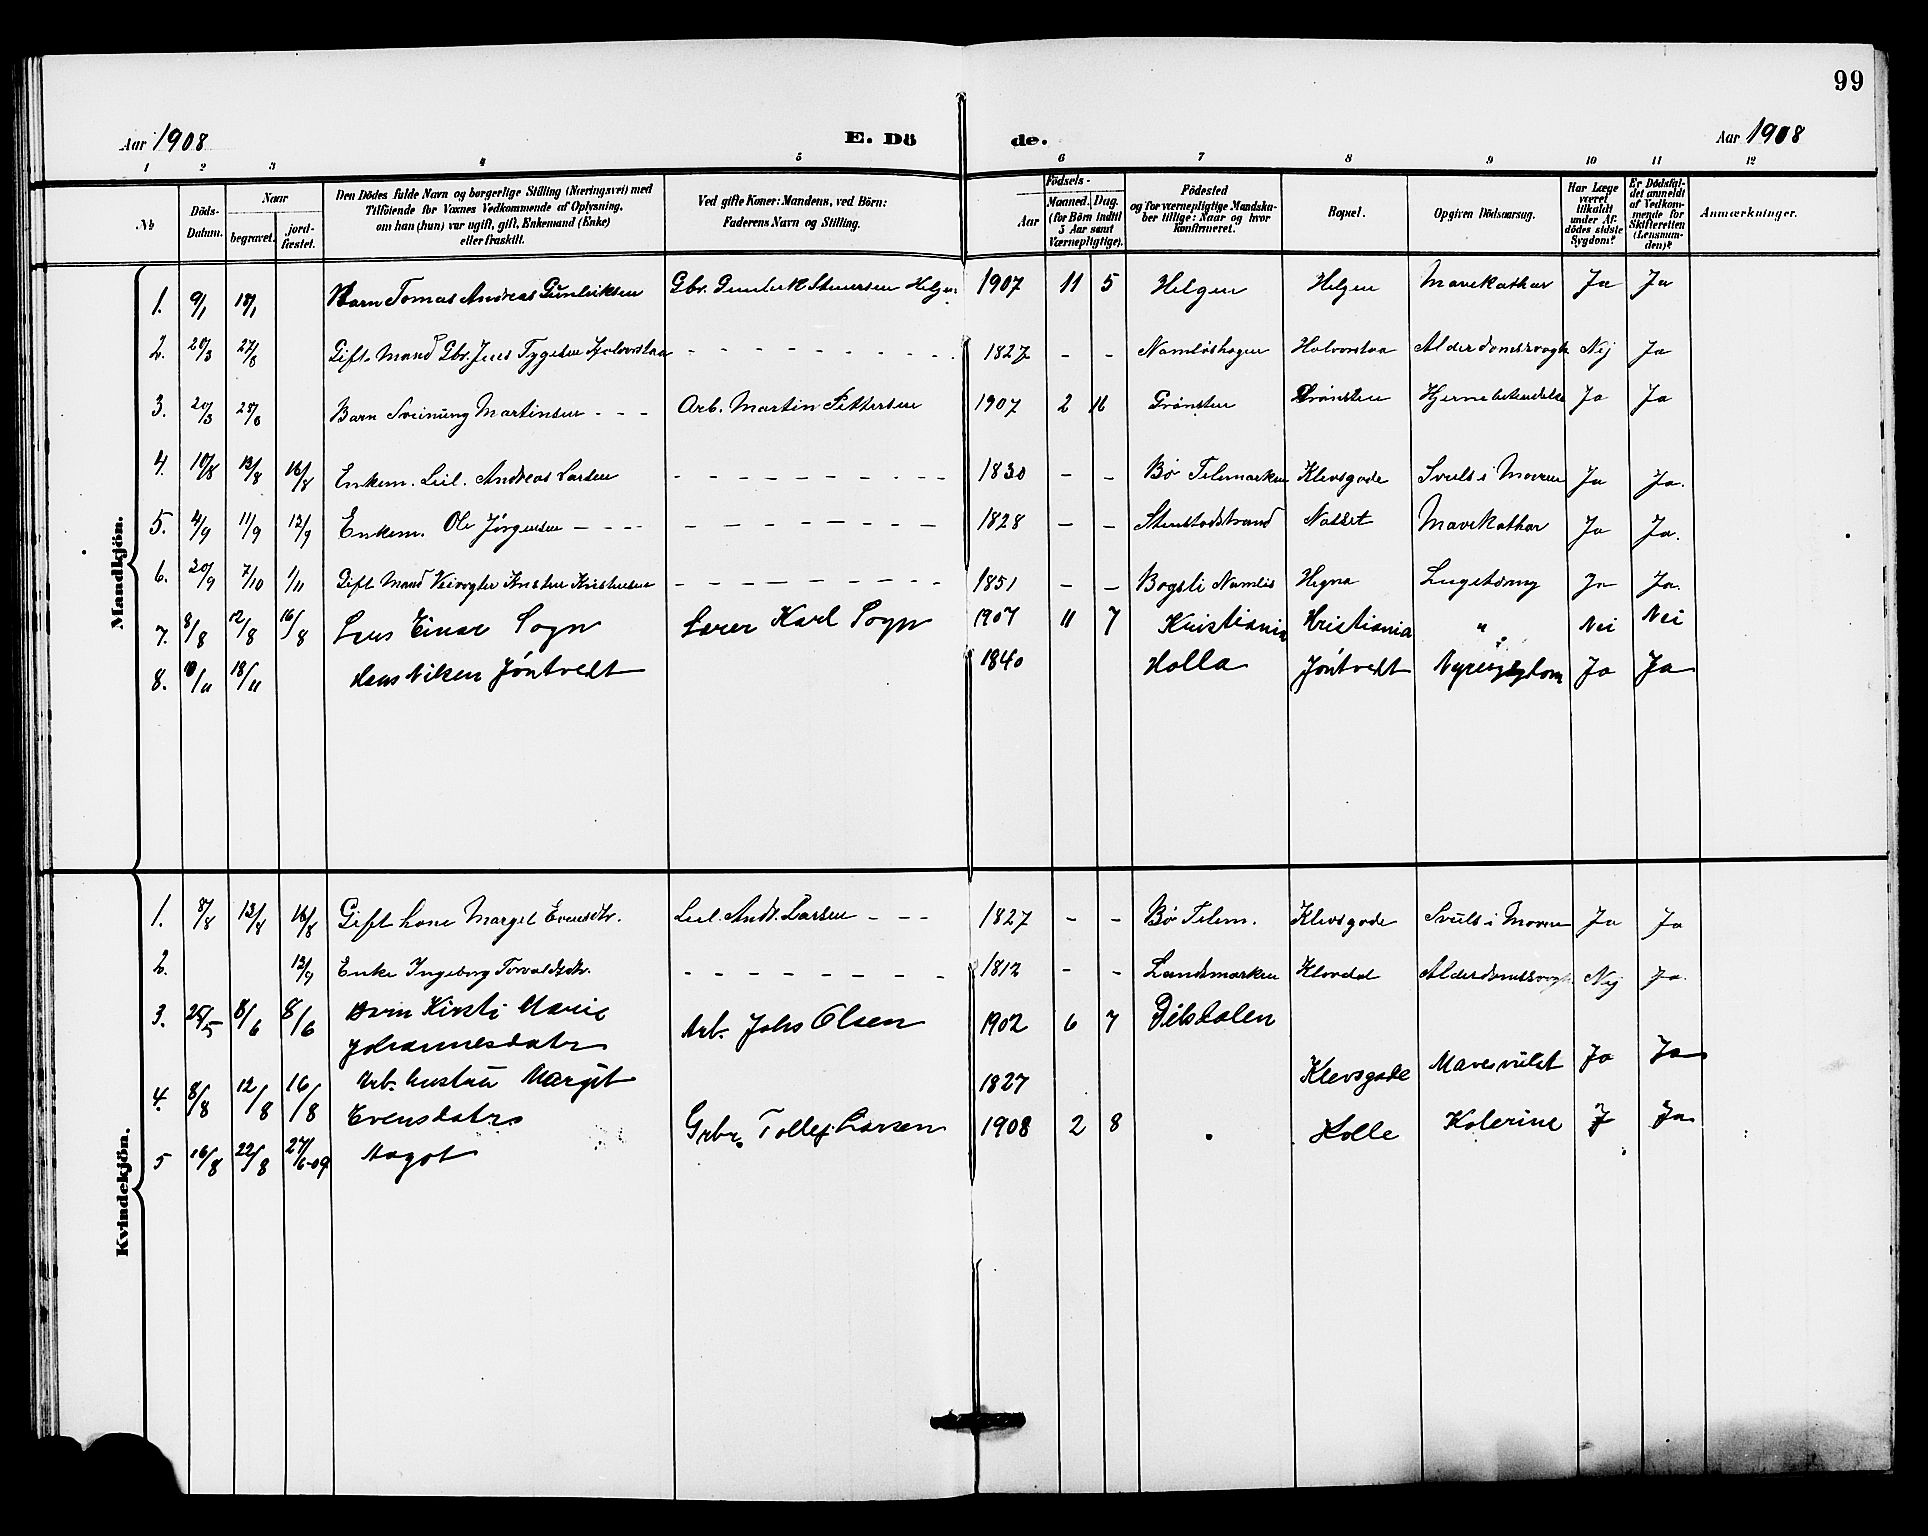 99
Aar 1908 E. Dö de. Aar 1908
1 2 3 4 5 6 7 8 9 10 11 12
No.
Döds-Datum.
Naar begravet. jordfæstet.
Den Dödes fulde Navn og borgerlige Stilling (Næringsvei) med Tilföiende for Voxnes Vedkommende af Oplysning, om han (hun) var ugift, gift, Enkemand (Enke) eller fraskilt.
Ved gifte Koner: Mandens, ved Börn: Faderens Navn og Stilling.
Födsels- Aar Maaned. Dag. (for Börn indtil 5 Aar samt Værnepligtige).
Födested og for værnepligtige Mandskaber tillige: Naar og hvor konfirmeret.
Bopæl.
Opgiven Dödsaarsag.
Har Læge været tilkaldt under Afdödes sidste Sygdom?
Er Dödsfaldet anmeldt af Vedkommende for Skifteretten (Lensmanden)?
Anmærkninger.
Mandkjön.
1. 9/1 18/1 Barn Tomas Andreas Gunleiksen Gbr. Gunleik Stenersen Helgen 1907 11 5 Helgen Helgen Mavekathar Ja Ja
2. 20/3 27/3 Gift Mand Gbr. Jens Tygesen - - - - - - - - 1827 - - Namløshagen Halvorstaa Alderdomssvaghe Nej Ja
3. 20/3 Barn Sveinung Martinsen - - - Arb. Martin Pettersen 1907 2 16 Grønsten Grønsten Hjernebetendelse Ja Ja
4. 10/8 13/8 16/8 Enkem. Leil. Andreas Larsen - - - - - - - - 1830 - - Bø Telemarken Klevsgade Svuls i Maven Ja Ja.
5. 4/9 11/9 12/9 Enkem. Ole Jørgensen - - - - - - - - - - 1828 - - Stenstadstrand Naset Mavekathar Ja Ja.
6. 20/9 7/10 1/11 Gift Mand Veivogter Kristen Kristensen - - - - - - - - 1851 - - Bogsli Namløs Hegna Ja Ja.
7. 8/8 12/8 16/8 Einar Sogn Lærer Karl Sogn 1907 11 7 Kristiania Kristiania " Nei Nei
8. 10/11 18/11 Hans Nilsen Jøntvedt 1840 Holla Jøntvedt Nyresygdom Ja Ja
Kvindekjön.
1. 8/8 13/8 16/8 Gift kone Margit Evensdtr. Leil. Andr. Larsen - - - 1827 - - Bø Telem. Klevsgade Svuls i Maven Ja Ja
2. 12/9 Enke Ingeborg Torvaldsdtr. - - - - - - - - 1812 - - Landsmarken Klovdal Alderdomssvagh Nej Ja.
3. 25/5 8/6 8/6 Barn Kirsti Marie Arb. Johs Olsen 1902 6 7 Dilsdalen
Johannesdatr
4. 8/8 12/8 16/8 Arb. hustru Margit 1827 Klevsgade Mavesvulst Ja Ja
Evensdatr
5 16/8 22/8 27/6-09 Aagot Grbr. Tollef Larsen 1908 2 8 Holle Kolerine J Ja